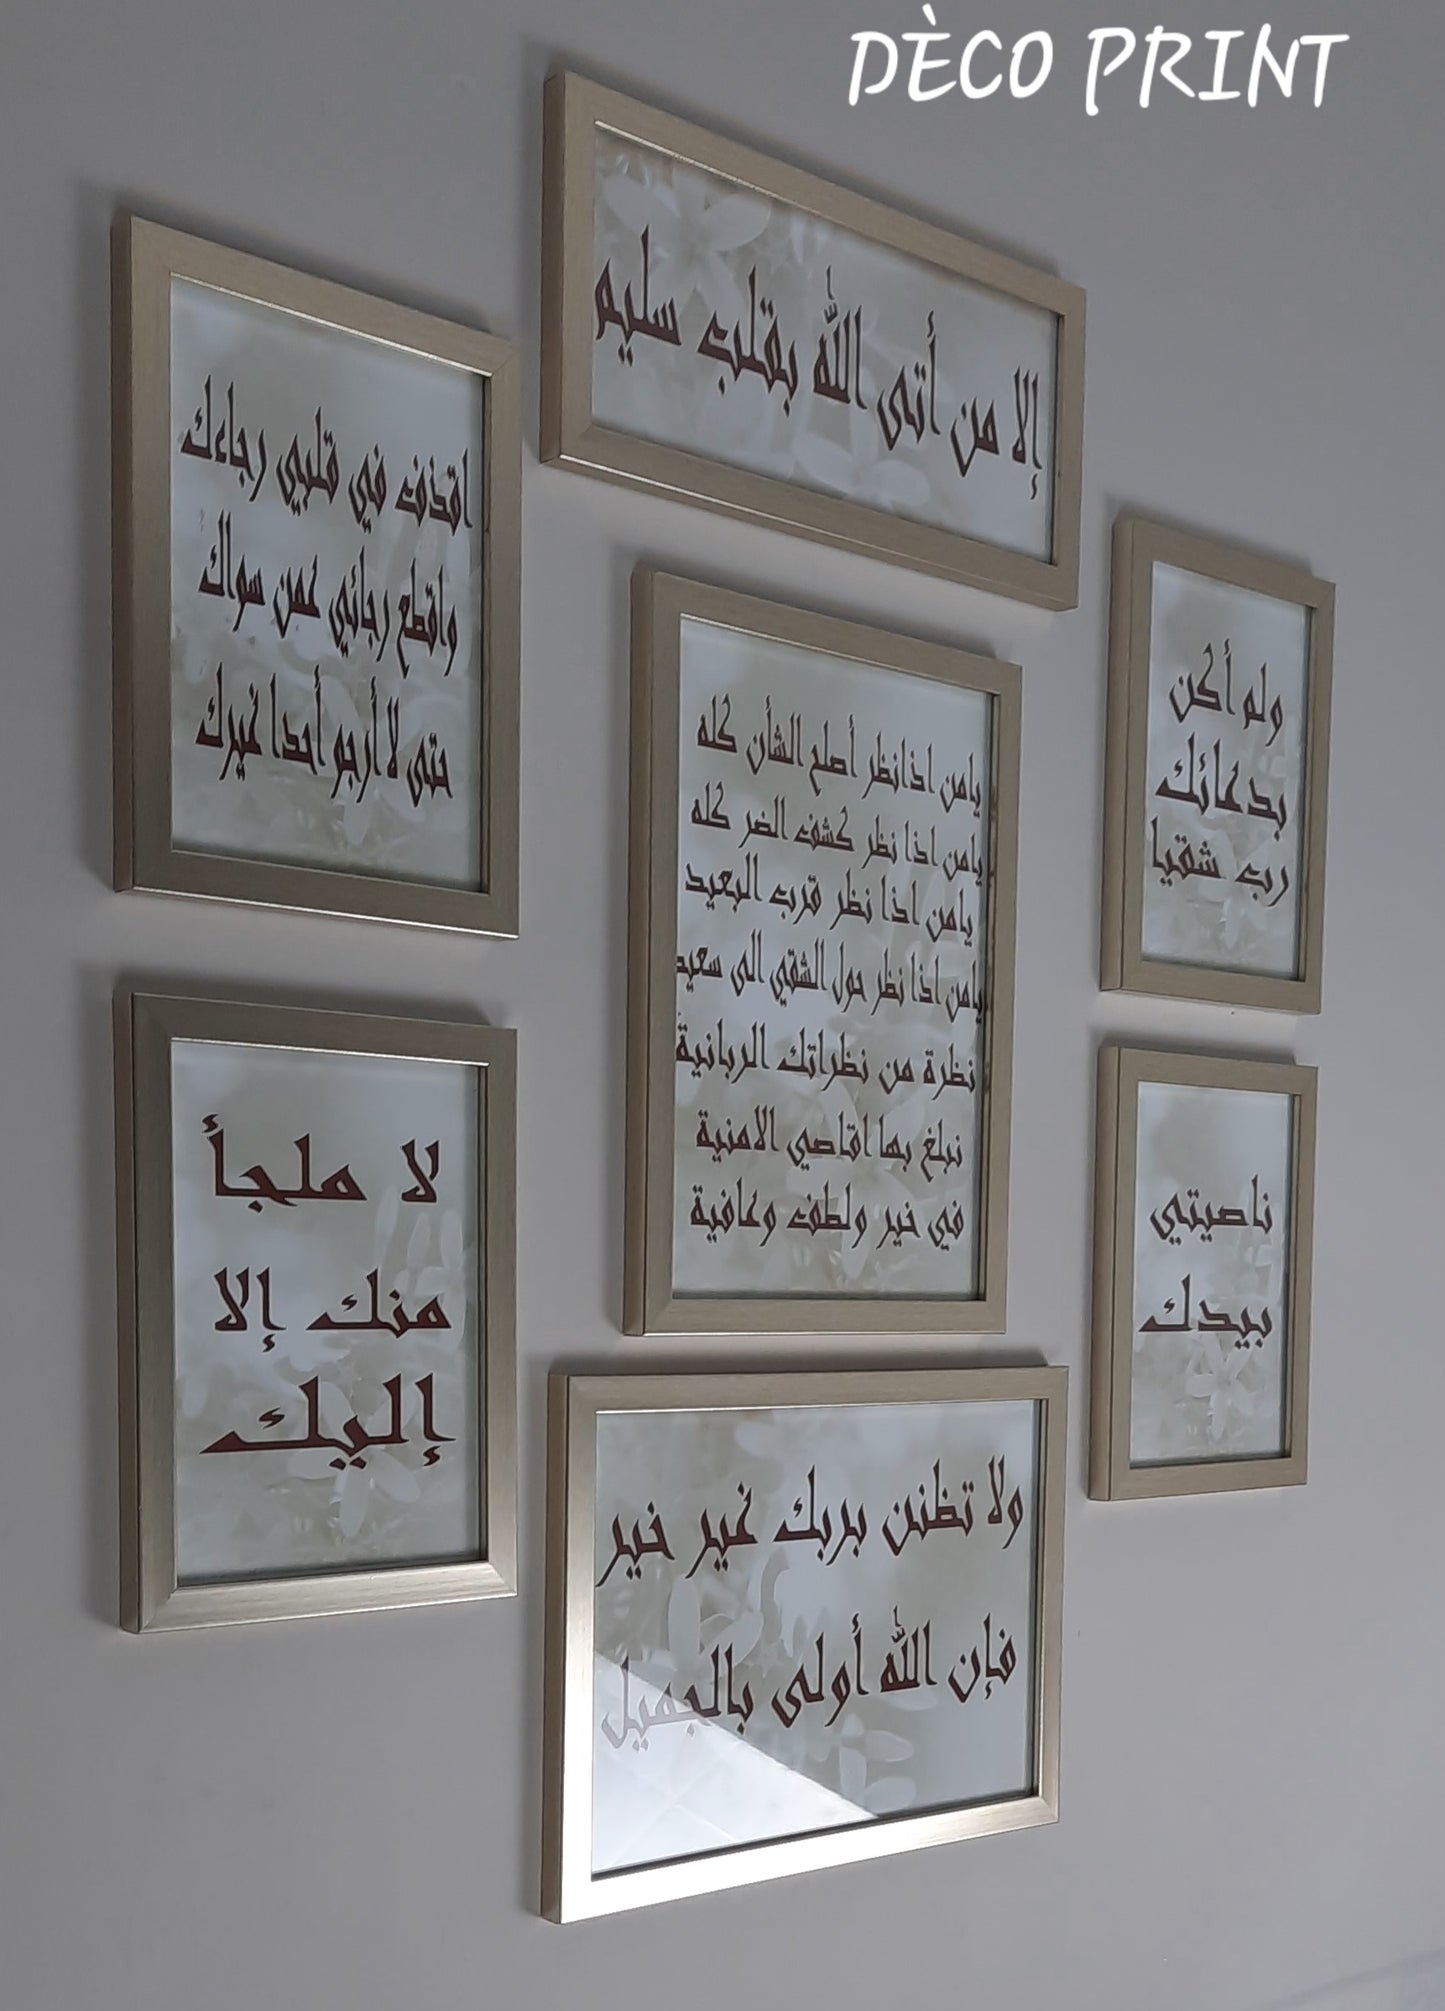 DÈCO PRINT
إلا من أتى الله بقلب سليم
اقذف في قلبي رجاءك
واقطع رجائي عمن سواك
حتى لا أرجو أحدا غيرك
يامن اذانظر أصلح الشأن كله
يامن اذا نظر كشف الضر كله
يامن اذا نظر قرب البعيد
يامن اذا نظر حول الشقي الى سعيد
نظرة من نظراتك الربانية
نبلغ بها اقاصي الامنية
في خير ولطف وعافية
ولم أكن
بدعائك
رب شقيا
لا ملجأ
منك إلا
إليك
ناصيتي
بيدك
ولا تظنن بربك غير خير
فإن الله أولى بالجميل